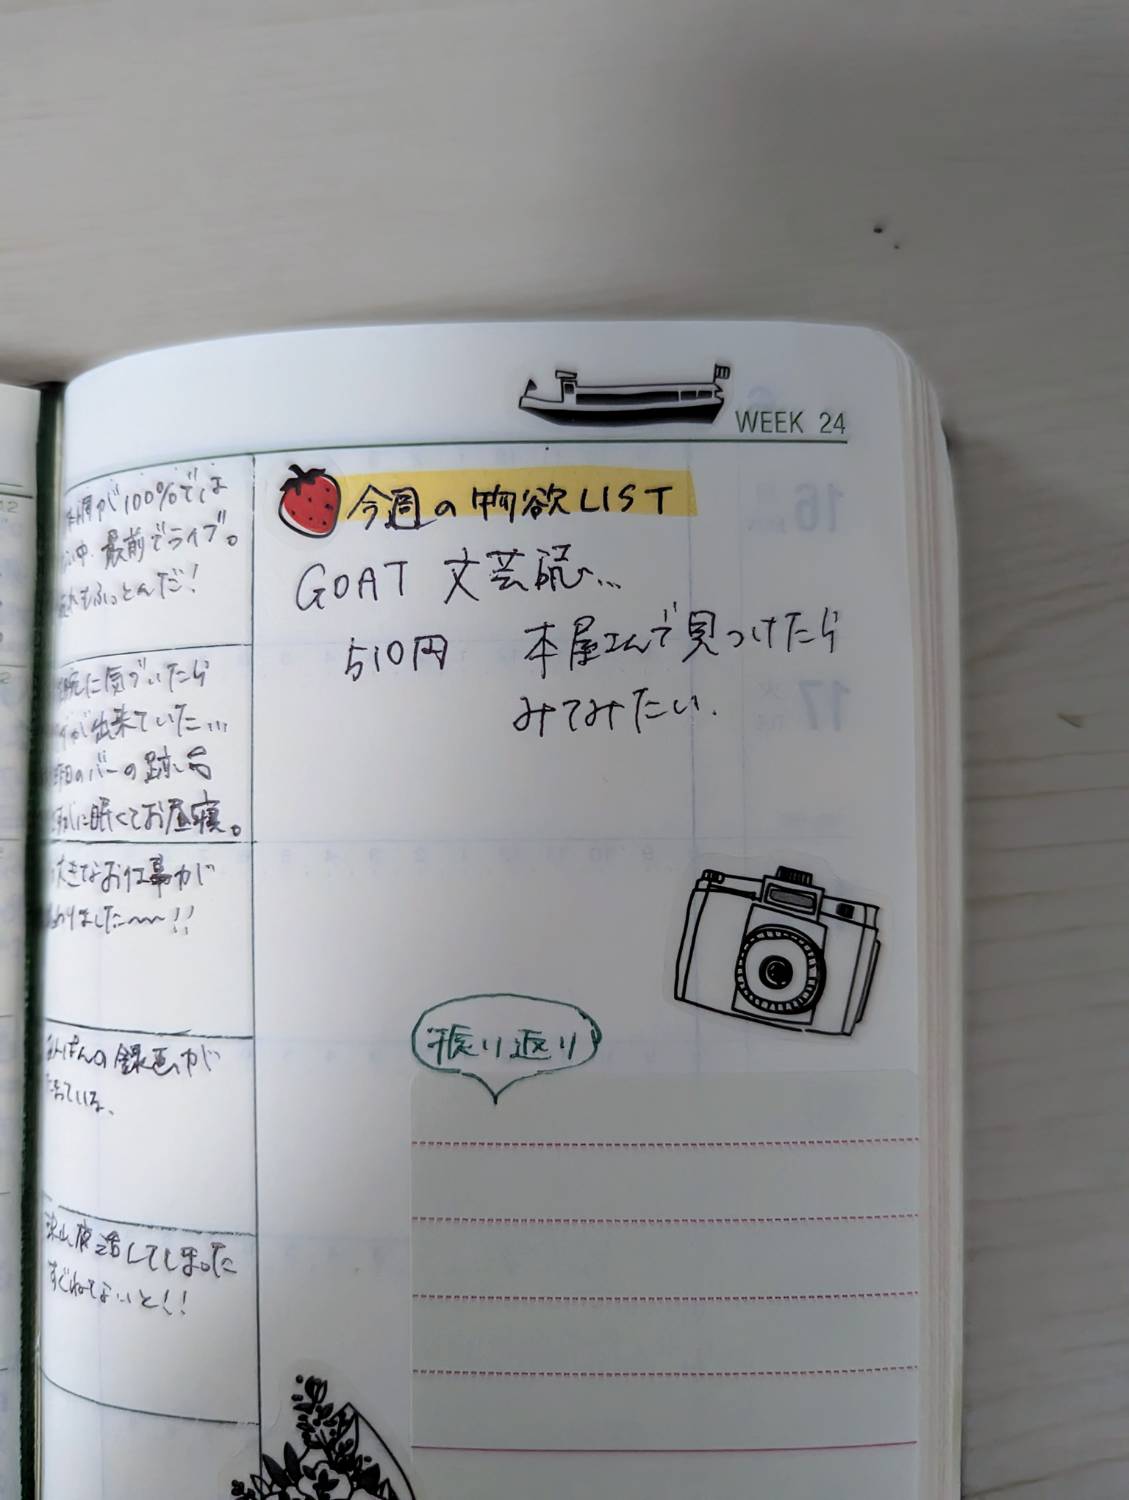 WEEK 24
今週の物欲LIST
GOAT 文芸誌...
510円 本屋さんで見つけたら
みてみたい.
体調が100%では
ない中、最前でライブ。
疲れもふっとんだ!
に気づいたら
が出来ていた...
昨日のバーの跡、も
に眠くてお昼寝。
大きなお仕事が
終わりました〜〜!!
の録画が
たまっている。
夜活してしまった
すぐねてないと!!
振り返り
16
17
火